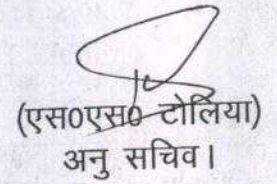 (एस0एस0 टोलिया)
अनु सचिव।